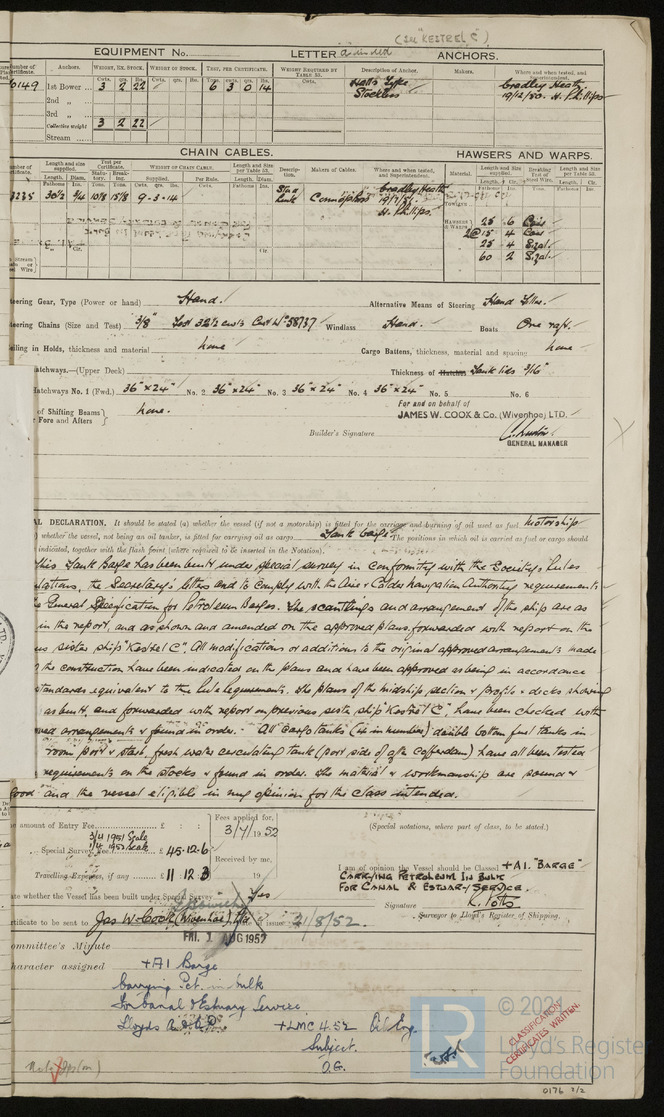 (see "KESTREL C")
EQUIPMENT No. LETTER ANCHORS.
Number of Certificate. Anchors. WEIGHT, EX. STOCK. WEIGHT OF STOCK. TEST, PER CERTIFICATE. WEIGHT REQUIRED BY TABLE 53. Description of Anchor. Makers. Where and when tested, and Superintendent.
Cwts. qrs. lbs. Cwts. qrs. lbs. Tons. cwts. qrs. lbs. Cwts.
0149 1st Bower ... 3 2 22 6 3 0 14 Halls Type Stockless Cradley Heath 19/12/50. H. Phillips
2nd „
3rd „
Collective weight 3 2 22
Stream
CHAIN CABLES. HAWSERS AND WARPS.
Length and size supplied. Test per Certificate. WEIGHT OF CHAIN CABLE. Length and Size per Table 53. Description. Makers of Cables. Where and when tested, and Superintendent. Material. Length and size supplied. Breaking Test of Steel Wire. Length and Size per Table 53.
Length. Diam. Statutory. Breaking. Supplied. Per Rule. Length. Diam. Length. Cir.
Fathoms Ins. Tons. Tons. Cwts. qrs. lbs. Cwts. Fathoms Ins.
3235 30½ 3/4 10⅛ 15⅛ 9 - 3 - 14 Stud Link Cradley Heath
H. Phillips.
HAWSERS & WARPS
25 6 Coir
2@15 4 Coir
25 4 Sizal
60 2 Sizal
Steering Gear, Type (Power or hand) Hand. Alternative Means of Steering Hand Tiller.
Steering Chains (Size and Test) 3/8" Test 32½ cwts Cert No 58737 Windlass Hand. Boats One raft.
Ceiling in Holds, thickness and material none Cargo Battens, thickness, material and spacing none
Hatchways.—(Upper Deck) Thickness of Hatches Tank lids 3/16"
Hatchways No. 1 (Fwd.) 36" x 24" No. 2 36" x 24" No. 3 36" x 24" No. 4 36" x 24" No. 5 No. 6
of Shifting Beams or Fore and Afters none.
For and on behalf of
JAMES W. COOK & Co. (Wivenhoe) LTD.
Builder's Signature
GENERAL MANAGER
AL DECLARATION. It should be stated (a) whether the vessel (if not a motorship) is fitted for the carriage and burning of oil used as fuel Motorship
) whether the vessel, not being an oil tanker, is fitted for carrying oil as cargo Tank barge The positions in which oil is carried as fuel or cargo should
indicated, together with the flash point (where required to be inserted in the Notation).
This Tank Barge has been built under special survey in conformity with the Society's Rules
the Secretary's letters and to comply with the Aire & Calder Navigation Authority requirements
General Specification for Petroleum Barges. The scantlings and arrangement of the ship are as
in the report, and as shown and amended on the approved plans forwarded with report on the
sister ship "Kestrel C". All modifications or additions to the original approved arrangements made
the construction have been indicated on the plans and have been approved as being in accordance
standards equivalent to the Rule Requirements. The plans of the midship section & profile & decks showing
as built, and forwarded with report on previous sister ship "Kestrel C", have been checked with
approved arrangements & found in order. - All cargo tanks (4 in number) double bottom fuel tanks in
room port & starb, fresh water circulating tank (port side of aft cofferdam) have all been tested
requirements on the stocks & found in order. The material & workmanship are sound &
good and the vessel eligible in my opinion for the class intended.
amount of Entry Fee £ : : Fees applied for,
3/7/1952 (Special notations, where part of class, to be stated.)
Special Survey Fee £ 45.12.6 Received by me,
Travelling Expenses, if any £ 11 12 3 19
I am of opinion the Vessel should be Classed +A1. "BARGE"
CARRYING PETROLEUM IN BULK
FOR CANAL & ESTUARY SERVICE.
whether the Vessel has been built under Special Survey Yes
Signature K. Potts
Surveyor to Lloyd's Register of Shipping.
Certificate to be sent to Jas W. Cook (Wivenhoe) Ltd Date of issue 21/8/52.
Committee's Minute FRI. 1 AUG 1952
Character assigned +A1 Barge
Carrying Pet. in bulk
for Canal & Estuary Service
Lloyds A & CP +LMC 4.52 Oil Eng.
Subject.
O.G.
CLASSIFICATION
CERTIFICATES WRITTEN.
LR
© 2021
Lloyd's Register
Foundation
0176 2/2